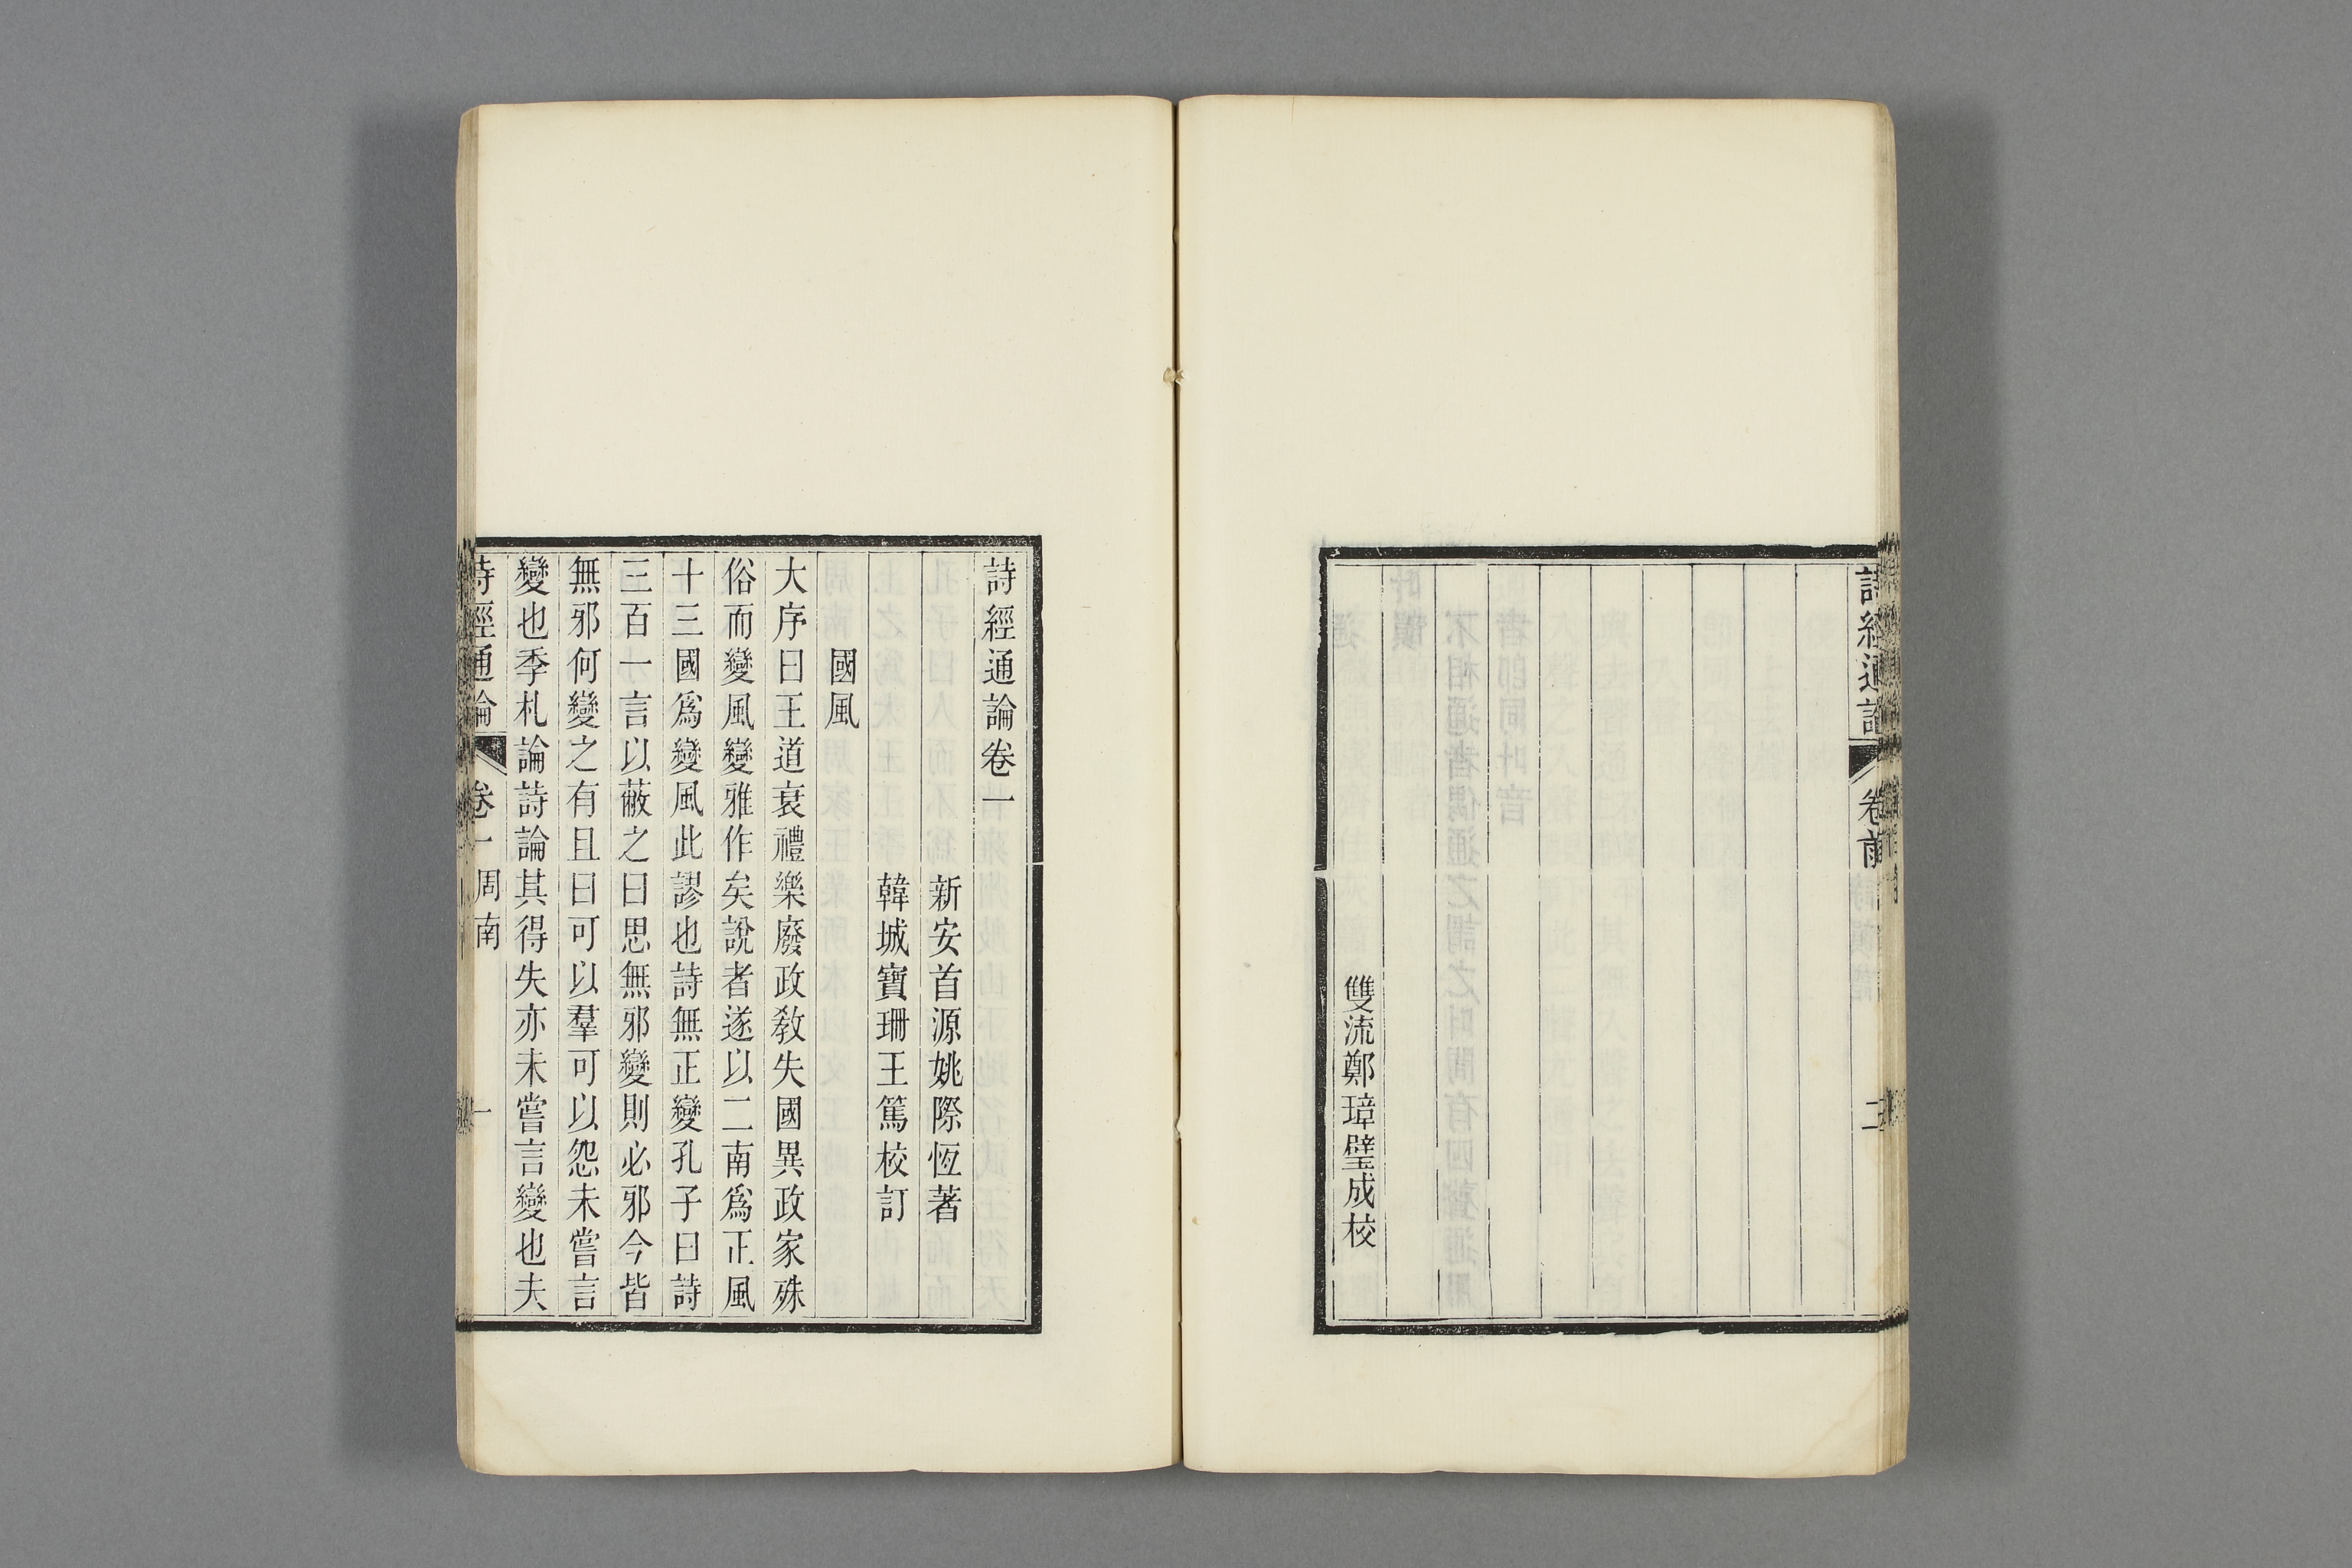 詩經通論
卷前
二
雙流鄭璋璧成校
詩經通論卷一
新安首源姚際恆著
韓城寶珊王篤校訂
國風
大序曰王道衰禮樂廢政教失國異政家殊
俗而變風變雅作矣說者遂以二南爲正風
十三國爲變風此謬也詩無正變孔子曰詩
三百一言以蔽之曰思無邪變則必邪今皆
無邪何變之有且曰可以羣可以怨未嘗言
變也季札論詩論其得失亦未嘗言變也夫
詩經通論
卷一周南
一